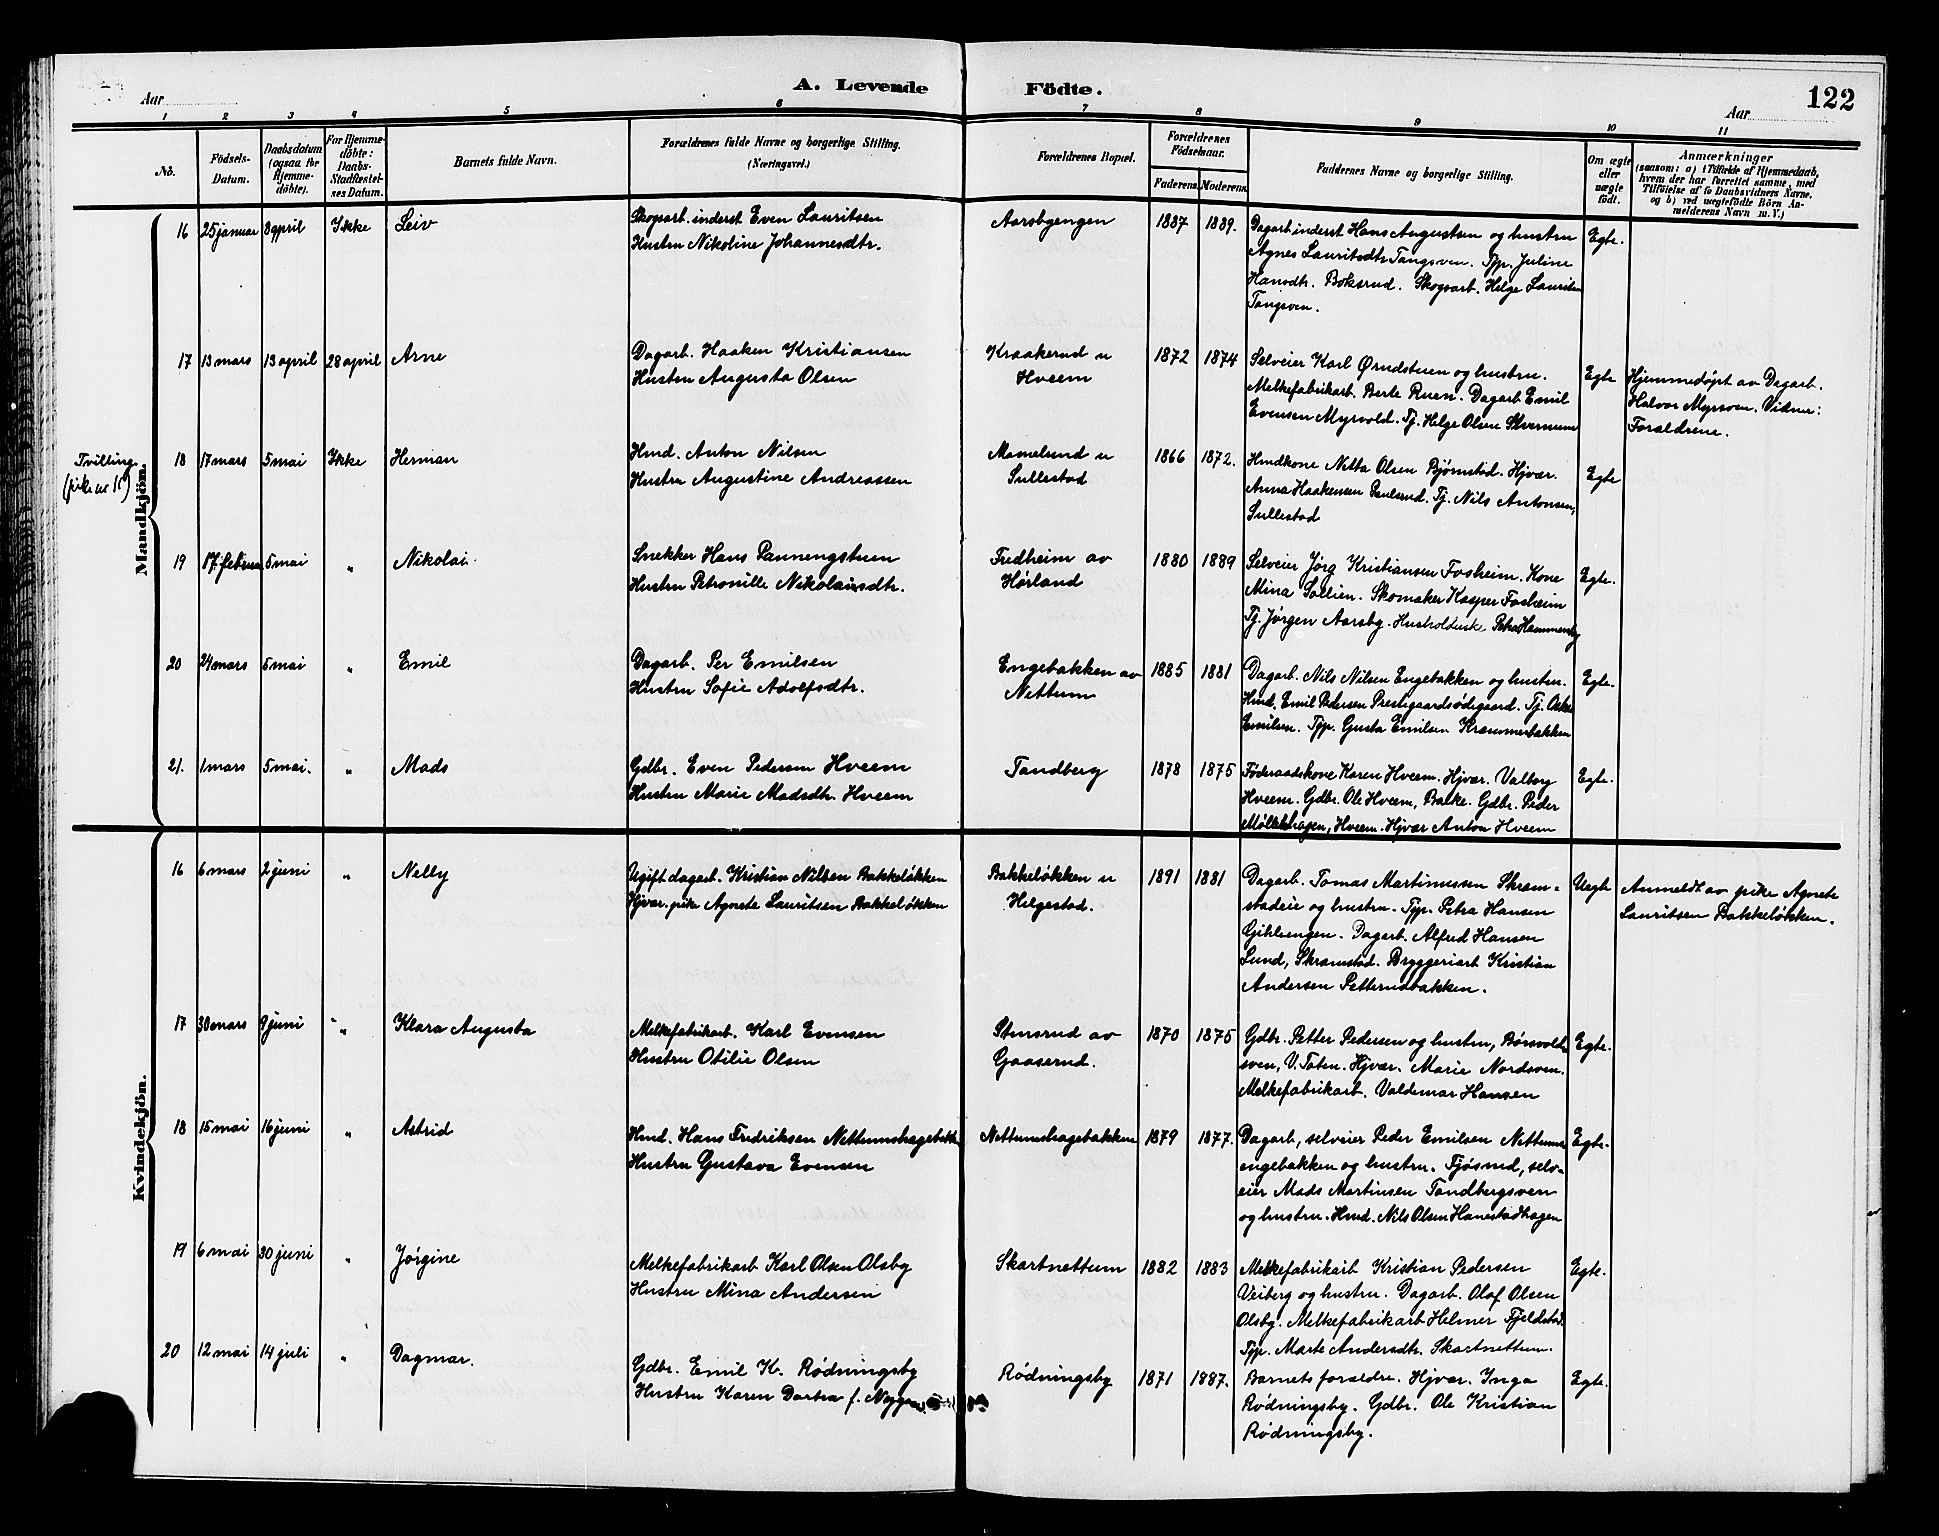 A. Levende Födte.
122
Aar
Aar
1 2 3 4 5 6 7 8 9 10 11
No.
Födsels-Datum.
Daabsdatum (ogsaa for Hjemmedöbte).
For Hjemmedöbte: Daabs-Stadfæstelses Datum.
Barnets fulde Navn.
Forældrenes fulde Navne og borgerlige Stilling. (Næringsvei.)
Forældrenes Bopæl.
Forældrenes Födselsaar.
Faderens
Moderens
Faddernes Navne og borgerlige Stilling.
Om ægte eller uægte født.
Anmærkninger
(saasom: a) i Tilfælde af Hjemmedaab, hvem der har forrettet samme, med Tilföielse af to Daabsvidners Navne, og b) ved uægtefödte Börn Anmelderens Navn m. V.)
Mandkjön.
16 25 januar 8 april Ikke Leiv
Skogsarb. inderst Even Lauritsen
Hustru Nikoline Johannesdtr.
Aarsbyengen 1887 1889.
Dagarb. inderst Hans Augustsen og hustru
Agnes Lauritsdtr Tangsven. Typ. Juline
Hansdtr. Boksrud. Skogsarb. Helge Lauritsen
Tangsven.
Egte.
17 13 mars 13 april 28 april Arne
Dagarb. Haaken Kristiansen
Hustru Augusta Olsen
Kraakerud u
Hveem
1872 1874
Selveier Karl Ørudstuen og hustru.
Melkefabrikarb. Berte Ruen. Dagarb Emil
Evensen Myrvold. Tj. Helge Olsen Skvernum
Egte
Hjemmedøpt av Dagarb.
Halvor Myrsven. Vidner:
Foraldrene.
Tvilling
(pike nr 15)
18 17 mars 5 mai Ikke Herman
Hmd. Anton Nilsen
Hustru Augustine Andreassen
Mamelund u
Sullestad
1866 1872.
Hmdkone Netta Olsen Bjørnstad. Hjvær.
Anna Haakensen Paulsrud. Tj. Nils Antonsen,
Sullestad
Egte
19 17 februar 5 mai " Nikolai
Snekker Hans Pannengstuen
Hustru Petronille Nikolaisdtr.
Fredheim av
Hørland
1880 1889
Selveier Jørg Kristiansen Fosheim. Kone
Mina Sorlien. Skomaker Kasper Fosheim
Tj. Jørgen Aarsby. Husholderske Petra Hammersby
Egte.
20 24 mars 5 mai " Emil
Dagarb. Per Emilsen
Hustru Sofie Adolfsdtr.
Engebakken av
Nettum
1885 1881
Dagarb. Nils Nilsen Engebakken og hustru.
Hmd. Emil Pedersen Prestgaardsødegaard. Tj. Oskar
Emilsen. Typ. Gusta Emilsen Kræmmerbakken
Egte.
21. 1 mars 5 mai. " Mads
Gdbr. Even Pedersen Hveem
Hustru Marie Madsdtr. Hveem
Tandberg 1878 1875
Føderaadskone Karen Hveem. Hjvær. Valborg
Hveem. Gdbr. Ole Hveem, Balke. Gdbr. Peder
Møllehagen, Hveem. Hjvær Anton Hveem
Egte.
Kvindekjön.
16 6 mars 2 juni " Nelly
Ugift dagarb. Kristian Nilsen Bakkeløkken
Hjvær. pike Agnete Lauritsen Bakkeløkken
Bakkeløkken u
Helgestad.
1891 1881
Dagarb. Tomas Martinussen Skram-
stadeie og hustru. Typ. Petra Hansen
Gihleengen. Dagarb. Alfred Hansen
Lund, Skramstad. Bryggeriarb Kristian
Andersen Petterudbakken.
Uegte
Anmeldt av pike Agnete
Lauritsen Bakkeløkken.
17 30 mars 9 juni " Klara Augusta
Melkefabrikarb. Karl Evensen
Hustru Otilie Olsen
Stensrud av
Gaaserud.
1870 1875
Gdbr. Petter Pedersen og hustru, Børsvold-
sven, V. Toten. Hjvær. Marie Nordsven.
Melkefabrikarb. Valdemar Hansen
Egte.
18 15 mai 16 juni " Astrid
Hmd. Hans Fredriksen Nettumshagebakk
Hustru Gustava Evensen
Nettumshagebakken 1879 1877.
Dagarb, selveier Peder Emilsen Nettums
engebakken og hustru. Fjøsmd, selv-
eier Mads Martinsen Tandbergsven
og hustru. Hmd. Nils Olsen Hanestadhagen
Egte.
19 6 mai 30 juni " Jørgine
Melkefabrikarb Karl Olsen Olsby
Hustru Mina Andersen
Skartnettum 1882 1883
Melkefabrikarb Kristian Pedersen
Veiberg og hustru. Dagarb. Olaf Olsen
Olsby. Melkefabrikarb Helmer Fjeldstad.
Typ. Marte Andersdtr. Skartnettum.
Egte.
20 12 mai 14 juli " Dagmar.
Gdbr. Emil K. Rødningsby
Hustru Karen Dortea f.
Rødningsby 1871 1887.
Barnets foraldre. Hjvær. Inga
Rødningsby. Gdbr. Ole Kristian
Rødningsby.
Egte.